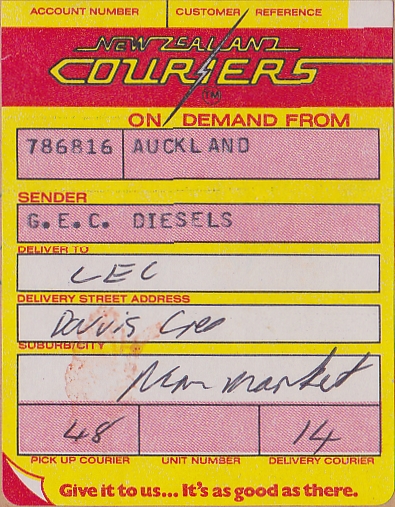 ACCOUNT NUMBER CUSTOMER REFERENCE
NEW ZEALAND
COURIERS
TM
ON DEMAND FROM
786816 AUCKLAND
SENDER
G.E.C. DIESELS
DELIVER TO
LEC
DELIVERY STREET ADDRESS
Davis Cres
SUBURB/CITY
Newmarket
48 14
PICK UP COURIER UNIT NUMBER DELIVERY COURIER
Give it to us... It's as good as there.